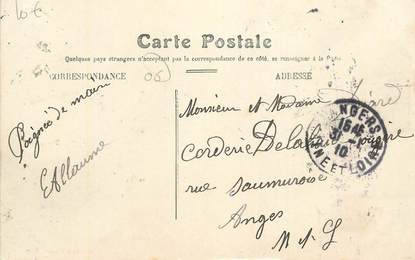 10 €
Carte Postale
Quelques pays étrangers n'acceptant pas la correspondance de ce côté, se renseigner à la Poste
CORRESPONDANCE
ADRESSE
06
Poignée de main
EAllaume
Monsieur et Madame
Corderie
rue Saumuroise
Anges
M et L
ANGERS
10
NE ET LOIRE